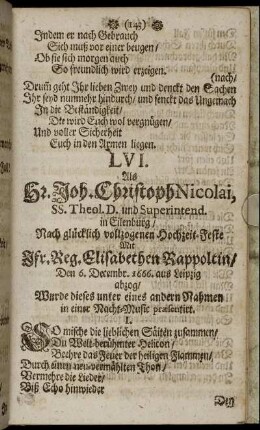 (143)
Indem er nach Gebrauch
Sich muß vor einer beugen/
Ob sie sich morgen auch
So freundlich wird erzeigen.
(nach/
Drum geht Ihr lieben Zwey und denckt den Sachen
Ihr seyd nunmehr hindurch/ und senckt das Ungemach
In die Beständigkeit/
Die wird Euch wol vergnügen/
Und voller Sicherheit
Euch in den Armen liegen.
LVI.
Als
Hr. Joh. Christoph Nicolai,
SS. Theol. D. und Superintend.
in Eilenburg/
Nach glücklich vollzogenen Hochzeit-Feste
Mit
Jfr. Reg. Elisabethen Rappoltin/
Den 6. Decembr. 1666. aus Leipzig
abzog/
Wurde dieses unter eines andern Nahmen
in einer Nacht-Music præsentirt.
I.
SO mische die lieblichen Säiten zusammen/
Du Welt-berühmter Helicon/
Bewhre das Feuer der heiligen Flammen/
Durch einen neu-vermählten Thon/
Vermehre die Lieder/
Biß Echo hinwieder
Den